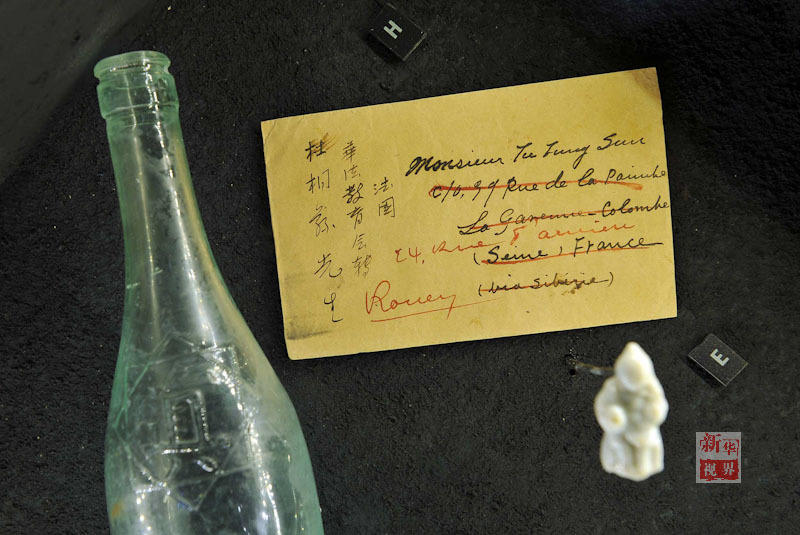 H
法國
華法教育会轉
桐蓀先生
Monsieur Tu Tung Sun
c/o, 39 Rue de la Pointe
La Garenne-Colombe
24, Rue
(Seine), France
Rouen
(via Sibirie)
E
新华
视界